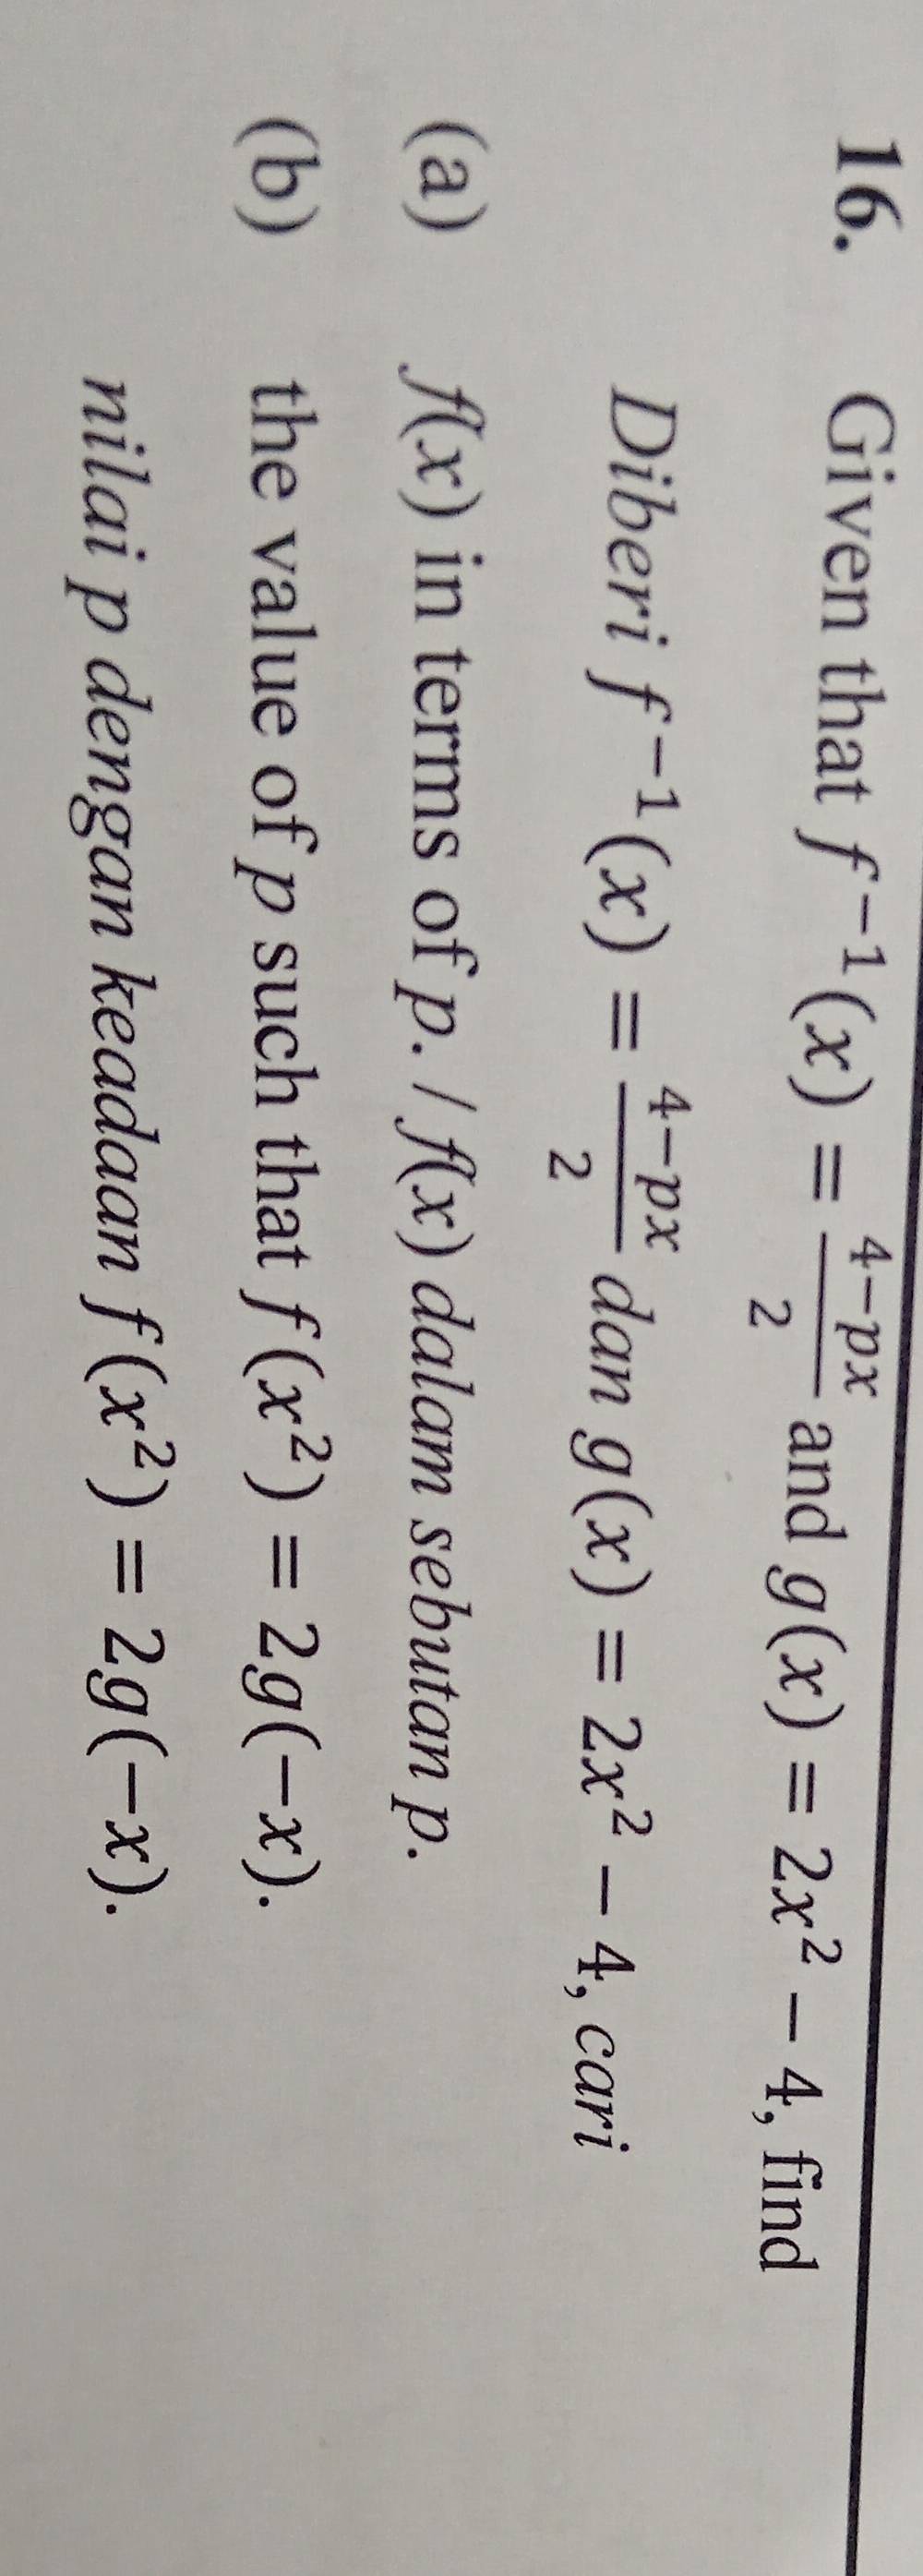 16. Given that f⁻¹(x) = (4−px)/2 and g(x) = 2x² − 4, find
Diberi f⁻¹(x) = (4−px)/2 dan g(x) = 2x² − 4, cari
(a) f(x) in terms of p. / f(x) dalam sebutan p.
(b) the value of p such that f(x²) = 2g(−x).
nilai p dengan keadaan f(x²) = 2g(−x).